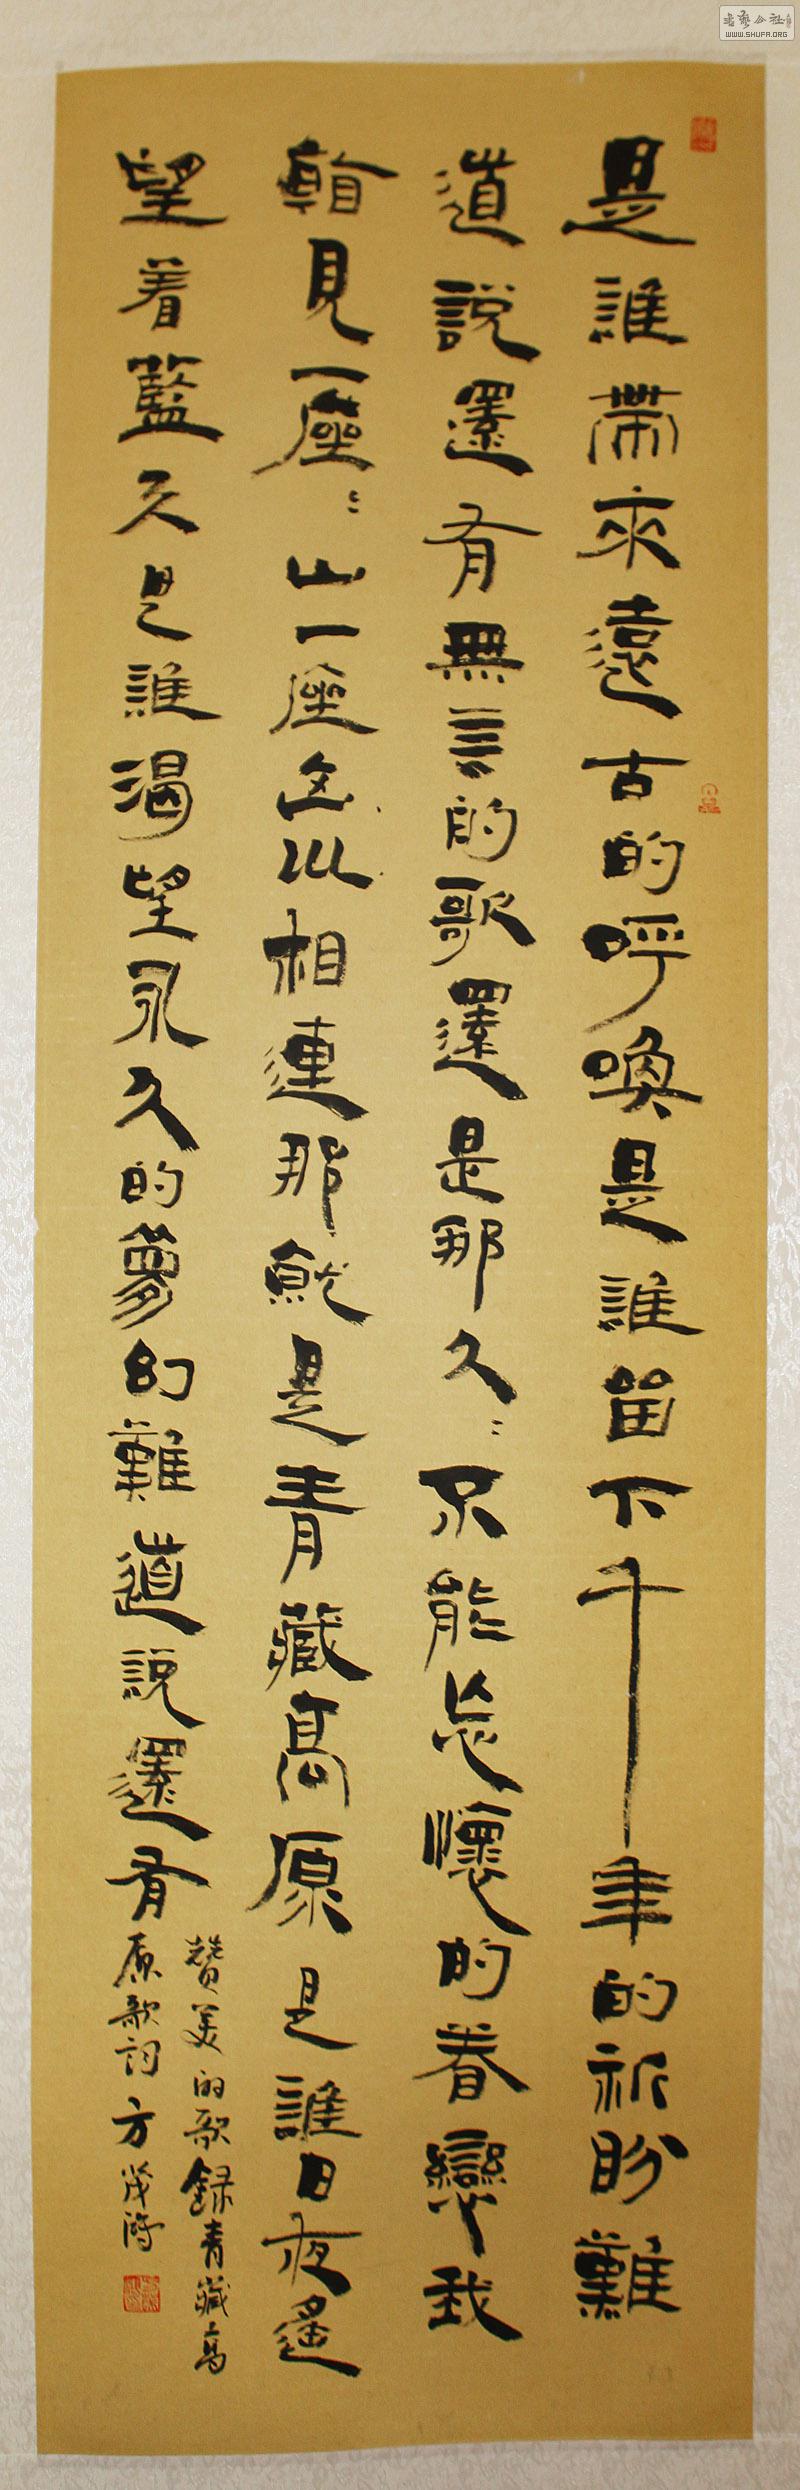 書藝公社
WWW.SHUFA.ORG
是誰帶來遠古的呼喚是誰留下千年的祈盼難
道說還有無言的歌還是那久〻不能忘懷的眷戀我
看見一座〻山一座山川相連那就是青藏高原是誰日夜遥
望着藍天是誰渴望永久的夢幻難道說還有
贊美的歌録青藏高
原歌詞方茂